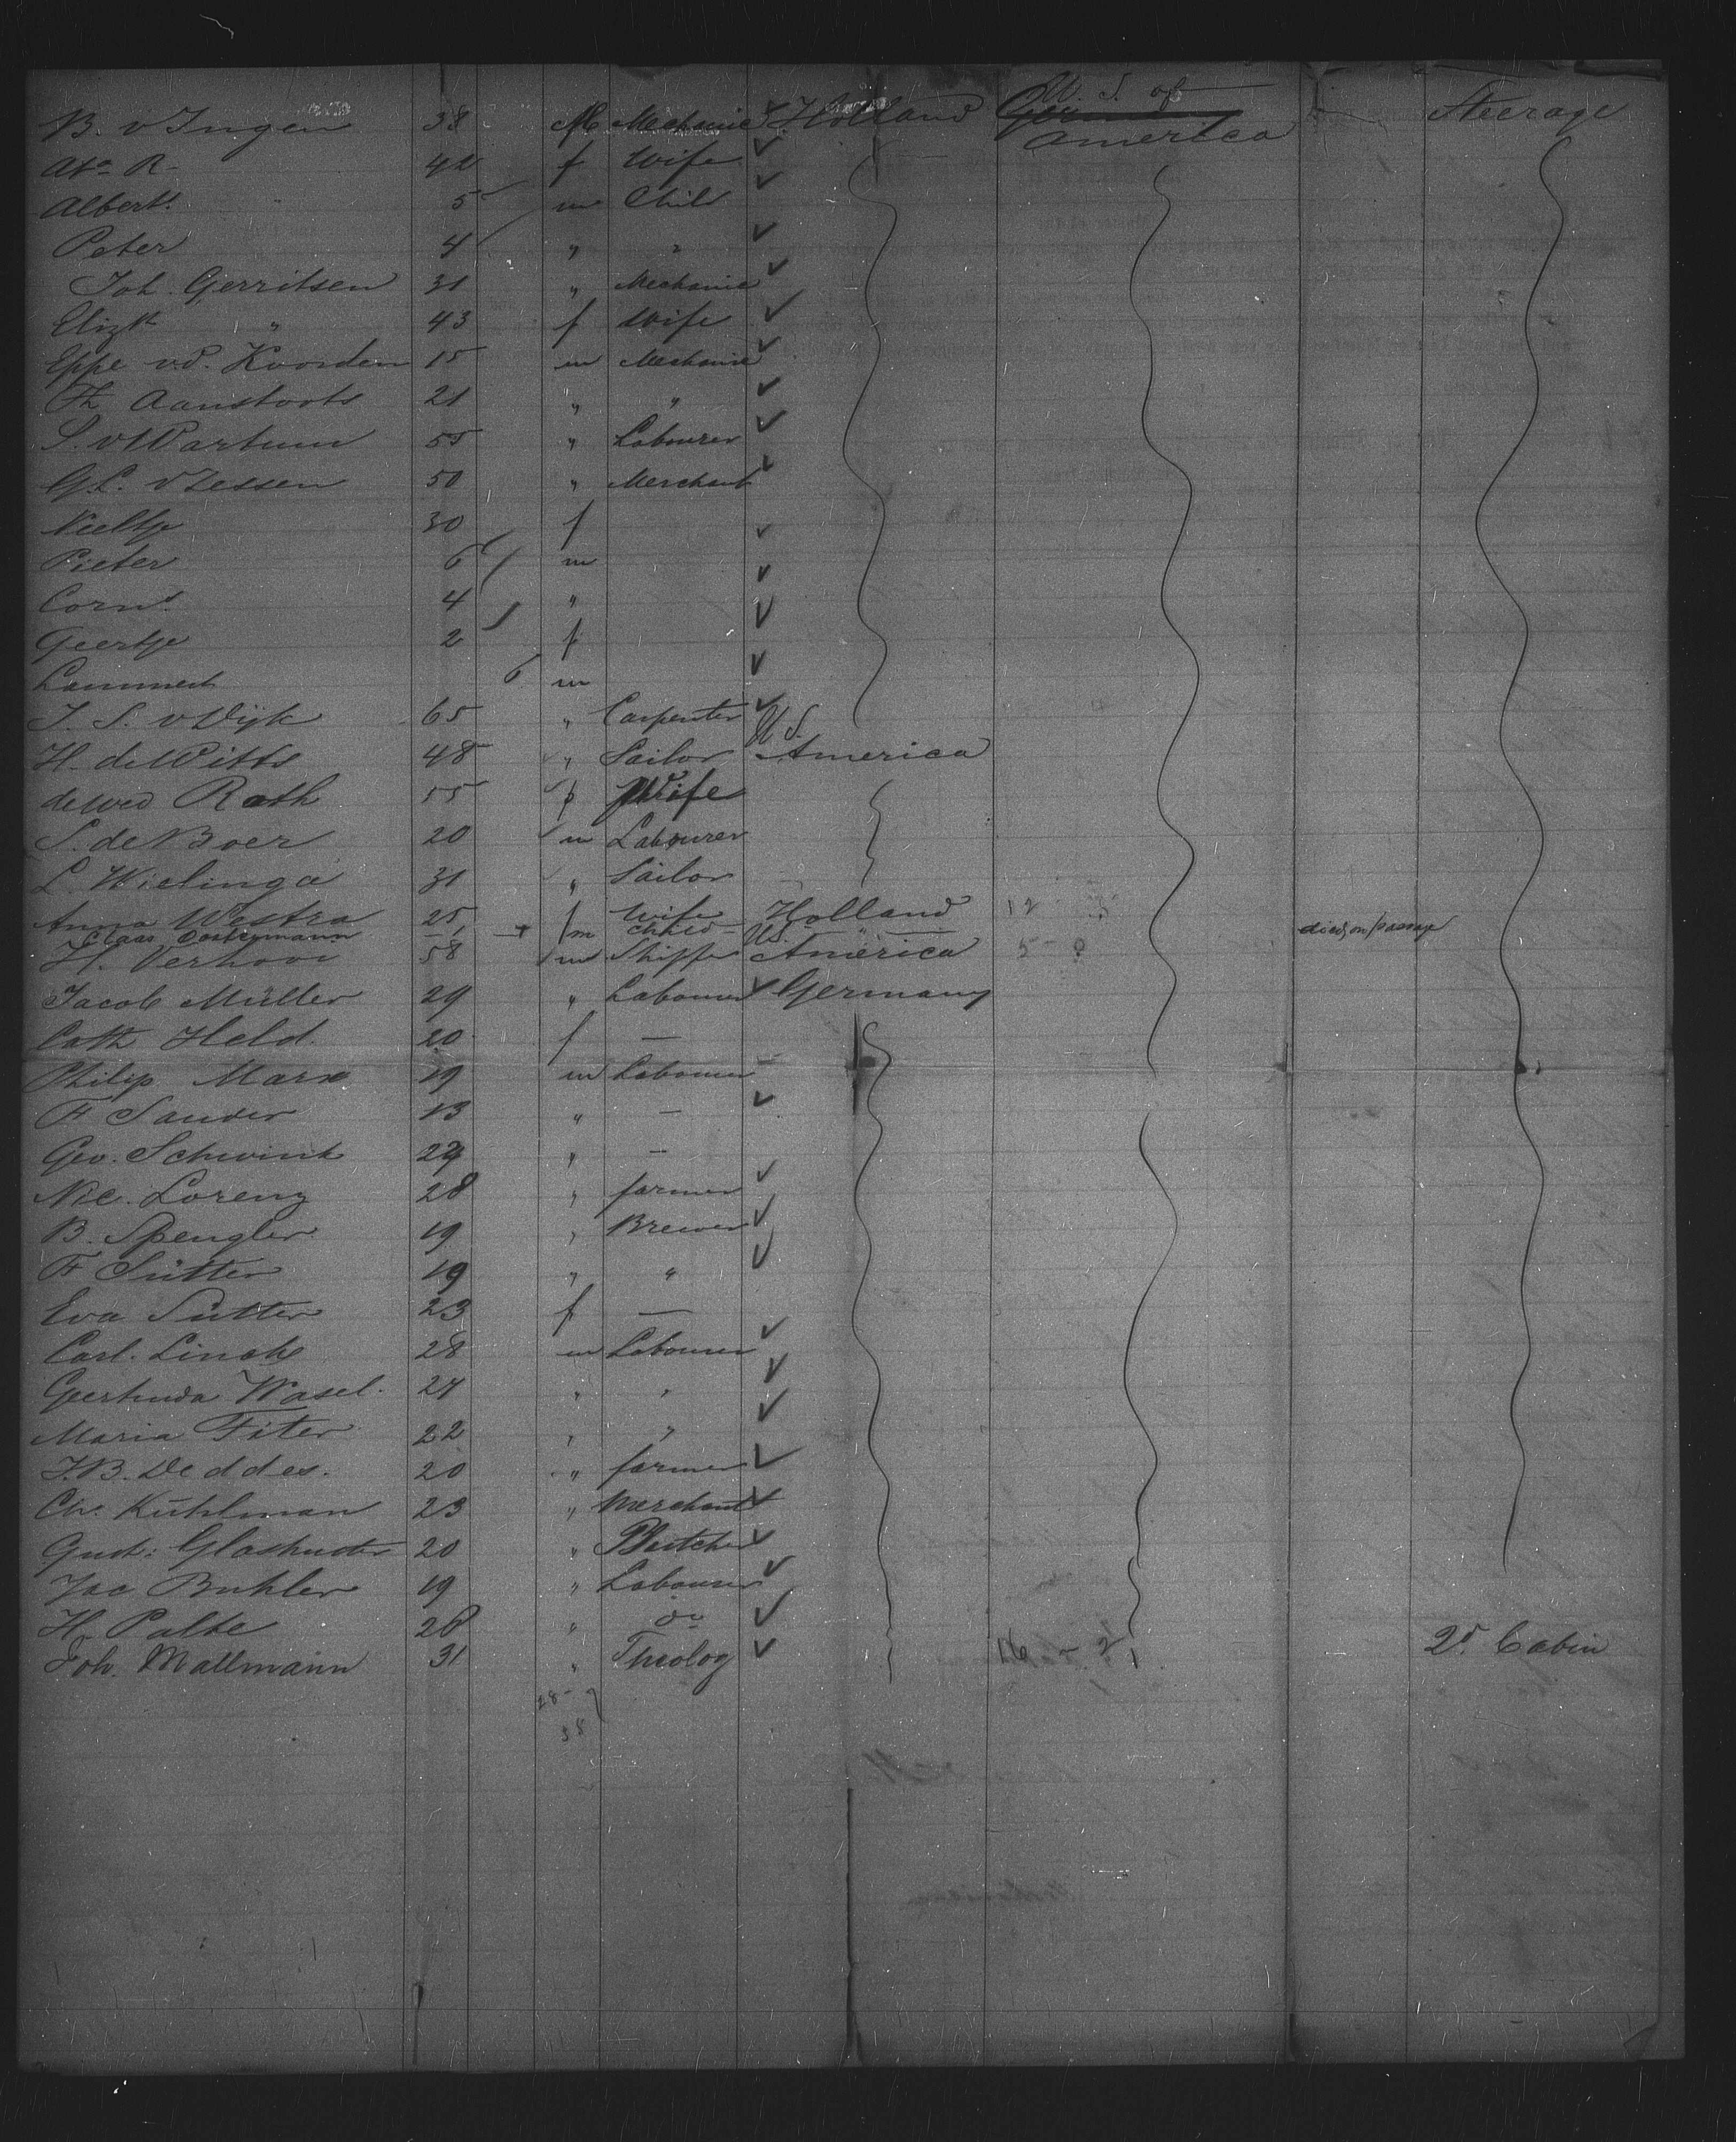 B. v Ingen 38 M Mechanic Holland U. S. of America Steerage
Ata R. 42 f Wife
Albert 5 m Child
Peter 4 " "
Joh. Gerritsen 31 " Mechanic
Elizth " 43 f Wife
Eppe v.d. Koorden 15 m Mechanic
Th Aanstoots 21 " "
S. v Wartum 55 " Labourer
G.L. v Zessen 50 " Merchant
Neeltje 30 f
Pieter 6 m
Corns 4 "
Geertje 2 f
Lammert 6 m
J. S. v Dijk 65 " Carpenter
H. de Witts 48 " Sailor U S. America
de wed Rath 55 f Wife
S. de Boer 20 m Labourer
L. Wielinga 31 " Sailor
Anna Westra 25 f Wife Holland 12
Claas Oostermann 1 m child " died on passage
H. Verhoor 58 m Shipper US. America 5 - 8
Jacob Müller 29 " Labourer Germany
Cath Held. 20 f —
Philip Marx 19 m Labourer
F Sander 13 " —
Geo. Schwink 29 " —
Nic. Lorenz 28 " farmer
B. Spengler 19 " Brewer
F Sütter 19 " "
Eva Sütter 23 f —
Carl. Linck 28 m Labourer
Geertruda Wasel. 24 " "
Maria Fiter 22 " "
J.B. Deddes. 20 " farmer
Chr. Kühlman 23 " Merchant
Gust: Glashuster 20 " Butcher
Jac Buhler 19 " Labourer
H. Palte 28 " do
Joh. Mallmann 31 " Theolog 16 2d Cabin
28 - 9
38